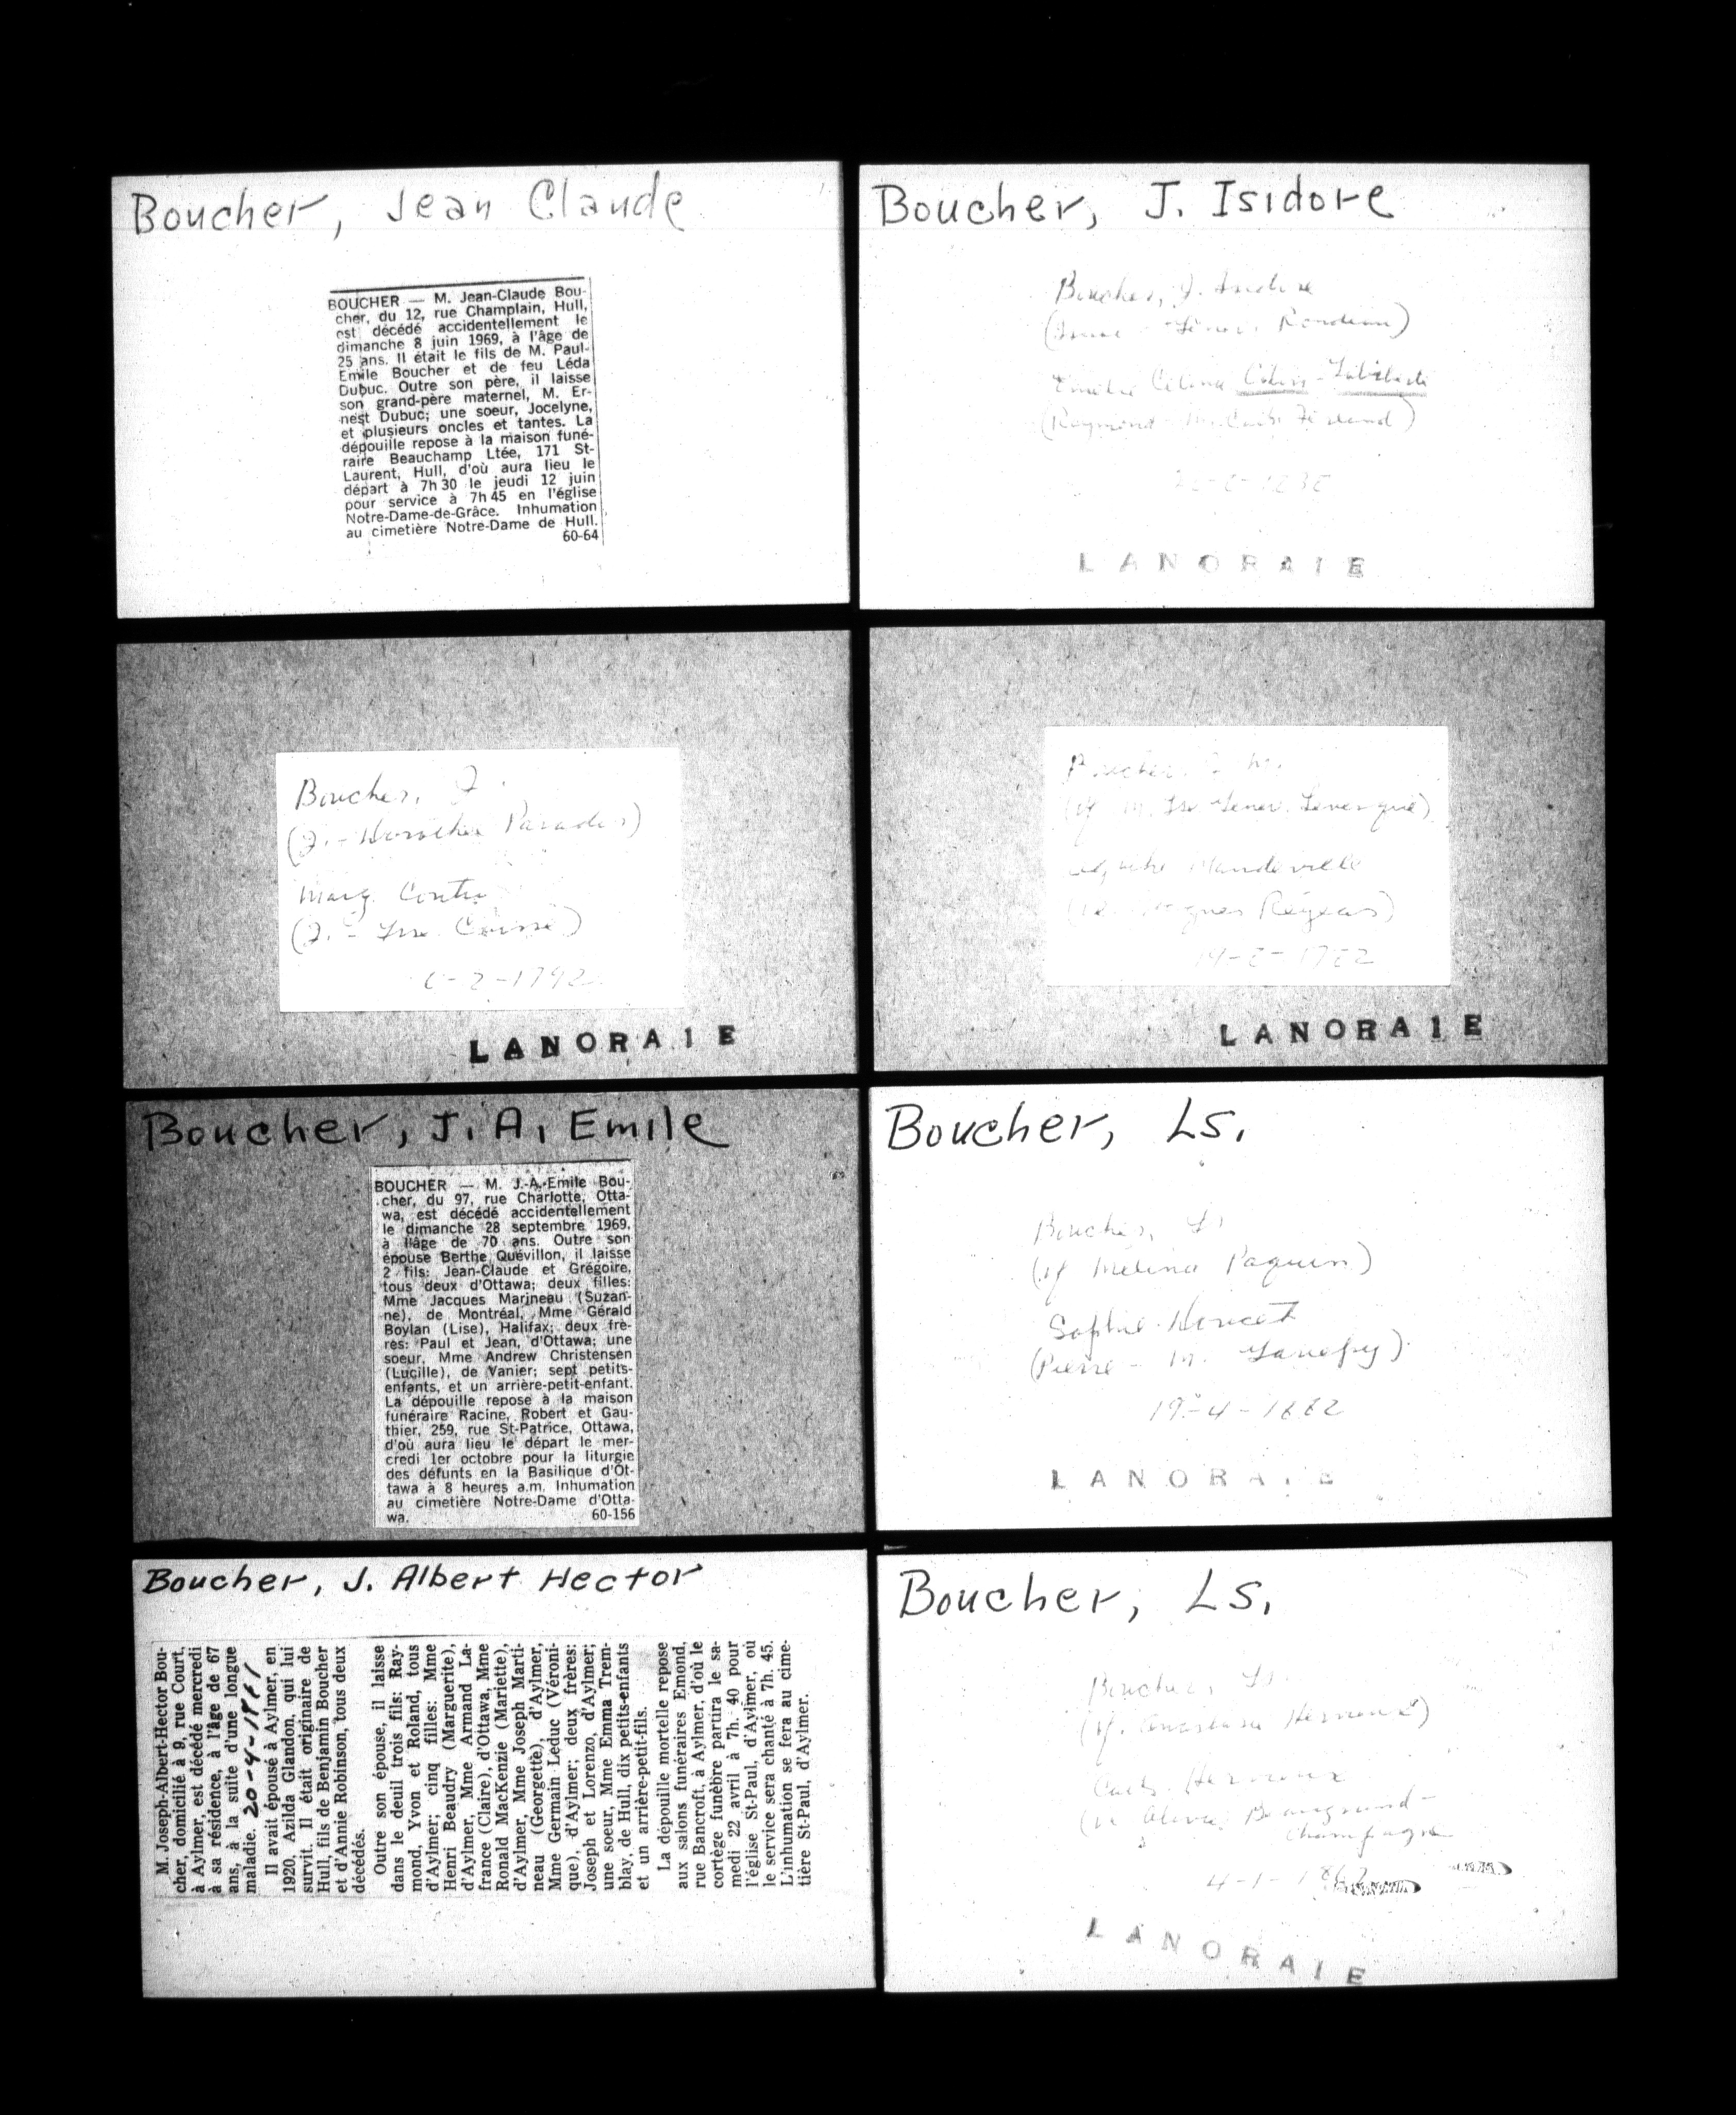 Boucher, Jean Claude
BOUCHER — M. Jean-Claude Bou-
cher, du 12, rue Champlain, Hull,
est décédé accidentellement le
dimanche 8 juin 1969, à l'âge de
25 ans. Il était le fils de M. Paul-
Emile Boucher et de feu Léda
Dubuc. Outre son père, il laisse
son grand-père maternel, M. Er-
nest Dubuc; une soeur, Jocelyne,
et plusieurs oncles et tantes. La
dépouille repose à la maison funé-
raire Beauchamp Ltée, 171 St-
Laurent, Hull, d'où aura lieu le
départ à 7h 30 le jeudi 12 juin
pour service à 7h 45 en l'église
Notre-Dame-de-Grâce. Inhumation
au cimetière Notre-Dame de Hull.
60-64
Boucher, J. Isidore
Boucher, J.
LANORAIE
Boucher, J.
(J. - Paradis)
Marg.
(J. -
-2-1792
LANORAIE
Mandeville
LANORAIE
Boucher, J. A. Emile
BOUCHER — M. J.-A.-Emile Bou-
cher, du 97, rue Charlotte, Otta-
wa, est décédé accidentellement
le dimanche 28 septembre 1969,
à l'âge de 70 ans. Outre son
épouse Berthe Quévillon, il laisse
2 fils: Jean-Claude et Grégoire,
tous deux d'Ottawa; deux filles:
Mme Jacques Marineau (Suzan-
ne), de Montréal, Mme Gérald
Boylan (Lise), Halifax; deux frè-
res: Paul et Jean, d'Ottawa; une
soeur, Mme Andrew Christensen
(Lucille), de Vanier; sept petits-
enfants, et un arrière-petit-enfant.
La dépouille repose à la maison
funéraire Racine, Robert et Gau-
thier, 259, rue St-Patrice, Ottawa,
d'où aura lieu le départ le mer-
credi 1er octobre pour la liturgie
des défunts en la Basilique d'Ot-
tawa à 8 heures a.m. Inhumation
au cimetière Notre-Dame d'Otta-
wa. 60-156
Boucher, Ls.
Boucher, Ls
(vf Melina Paquin)
Sophie
(Pierre - M.
LANORAIE
Boucher, J. Albert Hector
M. Joseph-Albert-Hector Bou-
cher, domicilié à 9, rue Court,
à Aylmer, est décédé mercredi
à sa résidence, à l'âge de 67
ans, à la suite d'une longue
maladie. 20-4-1961
Il avait épousé à Aylmer, en
1920, Azilda Glandon, qui lui
survit. Il était originaire de
Hull, fils de Benjamin Boucher
et d'Annie Robinson, tous deux
décédés.
Outre son épouse, il laisse
dans le deuil trois fils: Ray-
mond, Yvon et Roland, tous
d'Aylmer; cinq filles: Mme
Henri Beaudry (Marguerite),
d'Aylmer, Mme Armand La-
france (Claire), d'Ottawa, Mme
Ronald MacKenzie (Mariette),
d'Aylmer, Mme Joseph Marti-
neau (Georgette), d'Aylmer,
Mme Germain Leduc (Véroni-
que), d'Aylmer; deux frères:
Joseph et Lorenzo, d'Aylmer;
une soeur, Mme Emma Trem-
blay, de Hull, dix petits-enfants
et un arrière-petit-fils.
La dépouille mortelle repose
aux salons funéraires Emond,
rue Bancroft, à Aylmer, d'où le
cortège funèbre partira le sa-
medi 22 avril à 7h. 40 pour
l'église St-Paul, d'Aylmer, où
le service sera chanté à 7h. 45.
L'inhumation se fera au cime-
tière St-Paul, d'Aylmer.
Boucher, Ls.
Boucher, Ls.
Champagne
LANORAIE